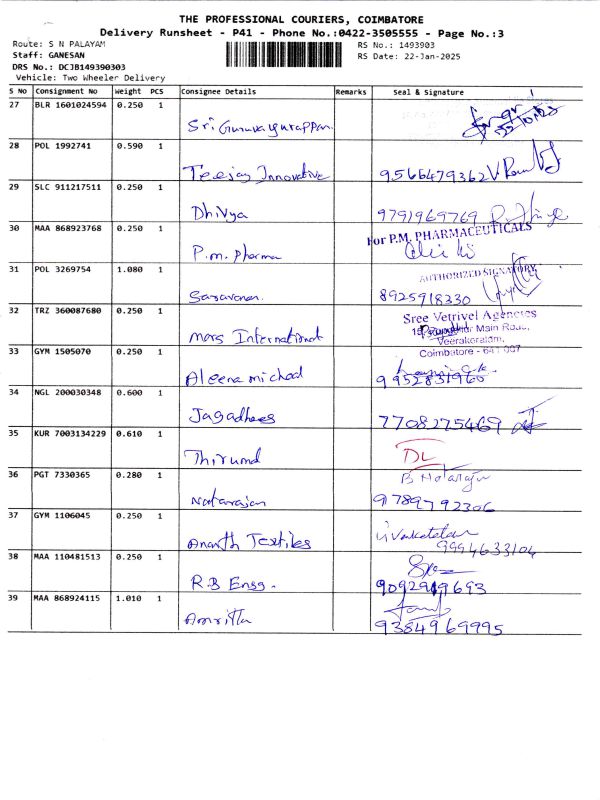 THE PROFESSIONAL COURIERS, COIMBATORE
Delivery Runsheet - P41 - Phone No.:0422-3505555 - Page No.:3
Route: S N PALAYAM RS No.: 1493903
Staff: GANESAN RS Date: 22-Jan-2025
DRS No.: DCJB149390303
Vehicle: Two Wheeler Delivery
S No Consignment No Weight PCS Consignee Details Remarks Seal & Signature
27 BLR 1601024594 0.250 1
Sri Guruvayurappan
28 POL 1992741 0.590 1
Teejay Innovative 9566479362
29 SLC 911217511 0.250 1
Dhivya 9791969769
30 MAA 868923768 0.250 1
For P.M. PHARMACEUTICALS
P.m. pharma
31 POL 3269754 1.080 1
AUTHORIZED SIGNATORY
Saravanan 8925918330
32 TRZ 360087680 0.250 1
Sree Vetrivel Agencies
Main Road,
mars International Veerakeralam,
33 GYM 1505070 0.250 1 Coimbatore - 641 007
Aleena michael 9952831960
34 NGL 200030348 0.600 1
Jagadhees 7708275469
35 KUR 7003134229 0.610 1
Thirumal DL
36 PGT 7330365 0.280 1
B Natarajan
Natarajan 9789792306
37 GYM 1106045 0.250 1
Ananth Textiles 9994633104
38 MAA 110481513 0.250 1
R.B Engg.
39 MAA 868924115 1.010 1
Amritha 9384969995